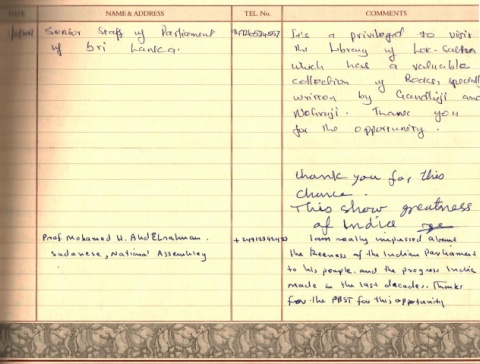 DATE NAME & ADDRESS TEL. No. COMMENTS
Senior Staff of Parliament
of Sri Lanka.
It's a privileged to visit
the Library of Lok-Sabha
which has a valuable
collection of Books, specially
written by Gandhiji and
Nehruji. Thank you
for the opportunity.
thank you for this
chance.
This show greatness
of India
Prof Mohamed H. Abd Elrahman.
Sudanese, National Assembley
I am really impressed about
the Keeness of the Indian Parliament
to his people. and the progress India
made in the last decades. Thanks
for the PBST for this opportunity